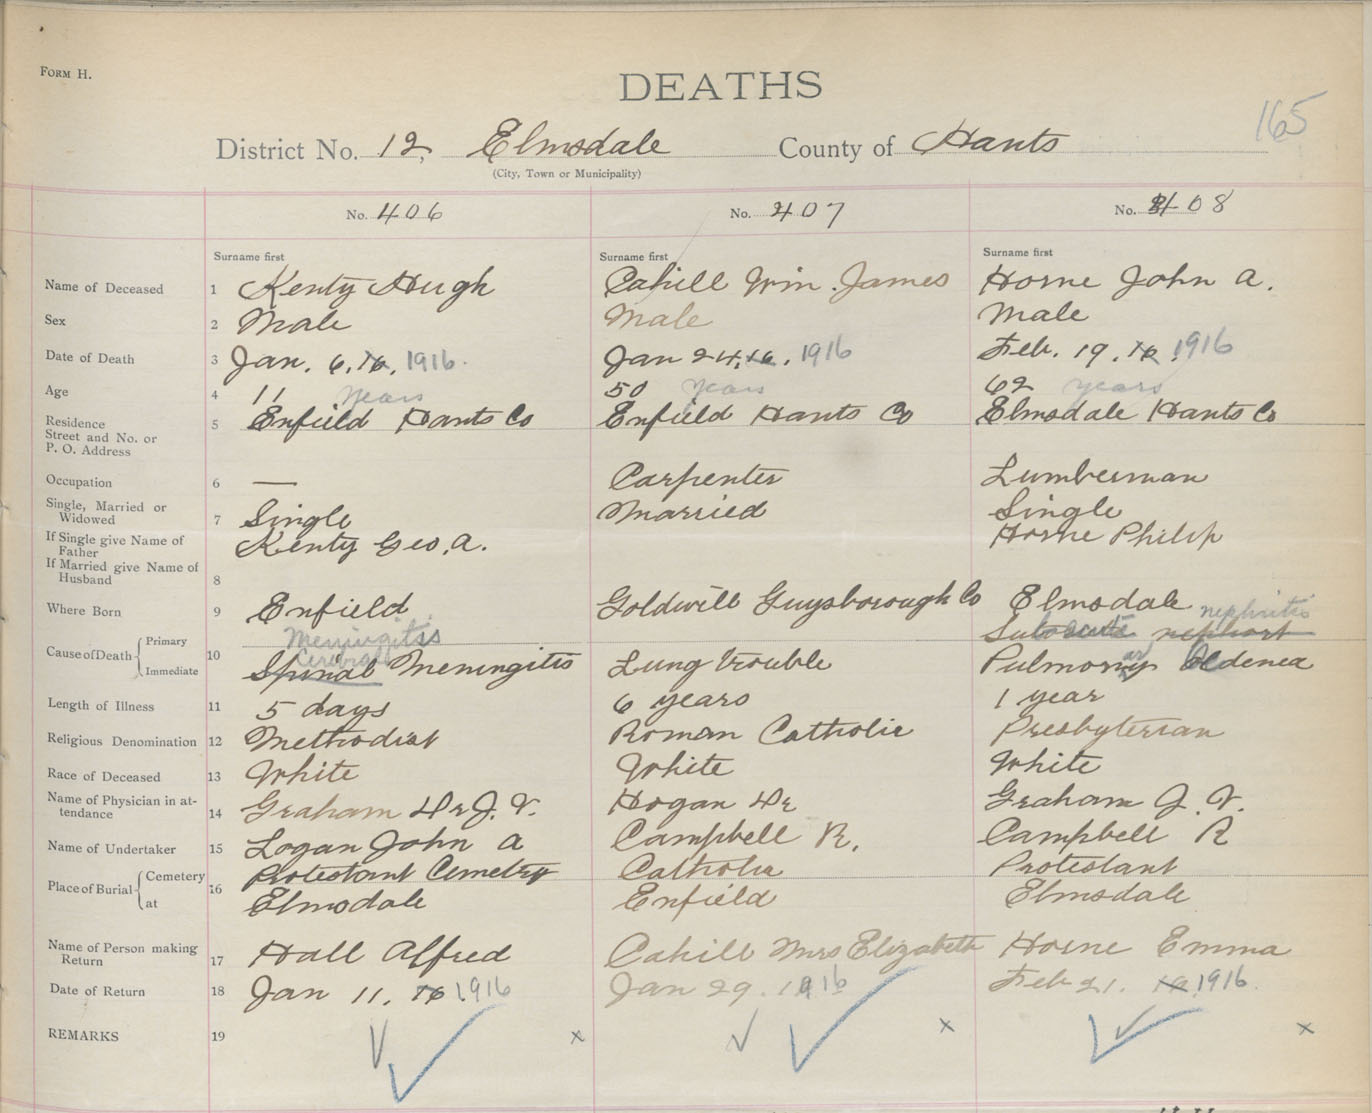 FORM H.
DEATHS
165
District No. 12, Elmsdale County of Hants
(City, Town or Municipality)
No. 406 No. 407 No. 408
Surname first Surname first Surname first
Name of Deceased 1 Kenty Hugh Cahill Wm. James Horne John A.
Sex 2 Male Male Male
Date of Death 3 Jan. 6, 16, 1916. Jan 24, 16, 1916 Feb. 19, 16, 1916
Age 4 11 years 50 years 62 years
Residence Street and No. or P. O. Address 5 Enfield Hants Co Enfield Hants Co Elmsdale Hants Co
Occupation 6 — Carpenter Lumberman
Single, Married or Widowed 7 Single Married Single
If Single give Name of Father Kenty Geo. A. Horne Philip
If Married give Name of Husband 8
Where Born 9 Enfield Goldwill Guysborough Co Elmsdale
Cause of Death Primary Meningitis nephritis
Immediate 10 Cerebral Spinal Meningitis Lung trouble Pulmonary Oedenea
Length of Illness 11 5 days 6 years 1 year
Religious Denomination 12 Methodist Roman Catholic Presbyterian
Race of Deceased 13 White White White
Name of Physician in attendance 14 Graham Dr J. V. Hogan Dr Graham J. V.
Name of Undertaker 15 Logan John A Campbell R. Campbell R
Place of Burial Cemetery 16 Protestant Cemetry Catholic Protestant
at Elmsdale Enfield Elmsdale
Name of Person making Return 17 Hall Alfred Cahill Mrs Elizabeth Horne Emma
Date of Return 18 Jan 11. 16 1916 Jan 29. 1916 Feb 21. 16 1916
REMARKS 19 x x x